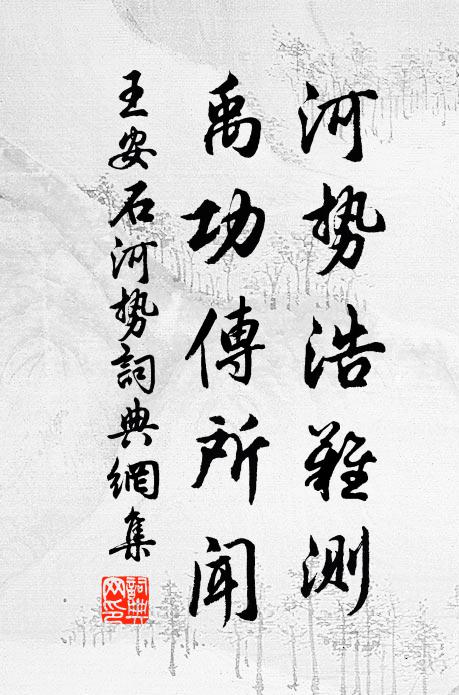 河势浩難测
禹功傳所闻
王安石河势詞典網集
詞典